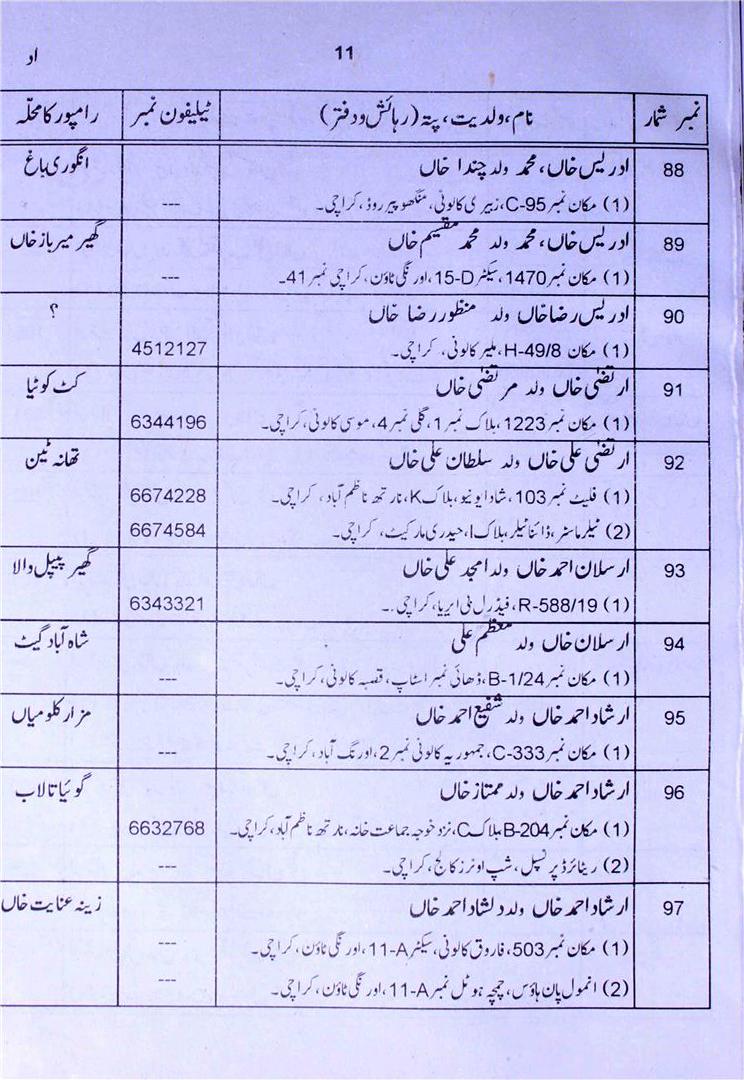 11
اد
نمبر شمار	نام، ولدیت، پتہ (رہائش و دفتر)	ٹیلیفون نمبر	رامپور کا محلّہ
88	ادریس خاں، محمد ولد چندا خاں		انگوری باغ
(1) مکان نمبر C-95، زبیری کالونی، منگھوپیر روڈ، کراچی۔	---
89	ادریس خاں، محمد ولد محمد مقیم خاں		گھیر میر باز خاں
(1) مکان نمبر 1470، سیکٹر 15-D، اورنگی ٹاؤن، کراچی نمبر 41۔	---
90	ادریس رضا خاں ولد منظور رضا خاں		؟
(1) مکان H-49/8، ملیر کالونی، کراچی۔	4512127
91	ارتضیٰ خاں ولد مرتضیٰ خاں		کٹ کوئیا
(1) مکان نمبر 1223، بلاک نمبر 1، گلی نمبر 4، موسی کالونی، کراچی۔	6344196
92	ارتضیٰ علی خاں ولد سلطان علی خاں		تھانہ ٹین
(1) فلیٹ نمبر 103، شاد ایونیو، بلاک K، نارتھ ناظم آباد، کراچی۔	6674228
(2) ٹیلر ماسٹر، ڈائنا ٹیلر، بلاک I، حیدری مارکیٹ، کراچی۔	6674584
93	ارسلان احمد خاں ولد امجد علی خاں		گھیر پیپل والا
(1) R-588/19، فیڈرل بی ایریا، کراچی۔	6343321
94	ارسلان خاں ولد معظم علی		شاہ آباد گیٹ
(1) مکان نمبر B-1/24، ڈھائی نمبر اسٹاپ، قصبہ کالونی، کراچی۔	---
95	ارشاد احمد خاں ولد شفیع احمد خاں		مزار کلو میاں
(1) مکان نمبر C-333، جمہوریہ کالونی نمبر 2، اورنگ آباد، کراچی۔	---
96	ارشاد احمد خاں ولد ممتاز خاں		گوئیا تالاب
(1) مکان نمبر B-204، بلاک C، نزد خوجہ جماعت خانہ، نارتھ ناظم آباد، کراچی۔	6632768
(2) ریٹائرڈ پرنسپل، شپ اونرز کالج، کراچی۔	---
97	ارشاد احمد خاں ولد دلشاد احمد خاں		زینہ عنایت خاں
(1) مکان نمبر 503، فاروق کالونی، سیکٹر 11-A، اورنگی ٹاؤن، کراچی۔	---
(2) انمول پان ہاؤس، چمچہ ہوٹل نمبر 11-A، اورنگی ٹاؤن، کراچی۔	---